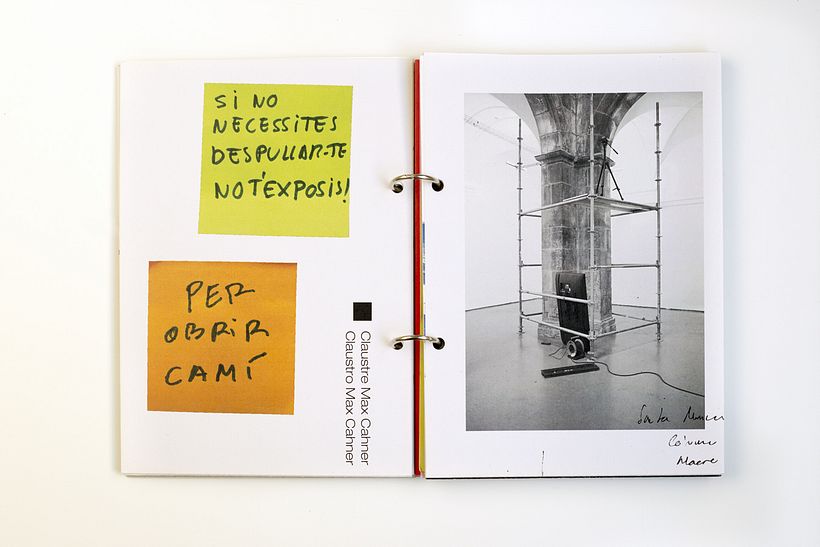 SI NO
NECESSITES
DESPULLAR-TE
NO T'EXPOSIS!
PER
OBRIR
CAMÍ
Claustre Max Cahner
Claustro Max Cahner